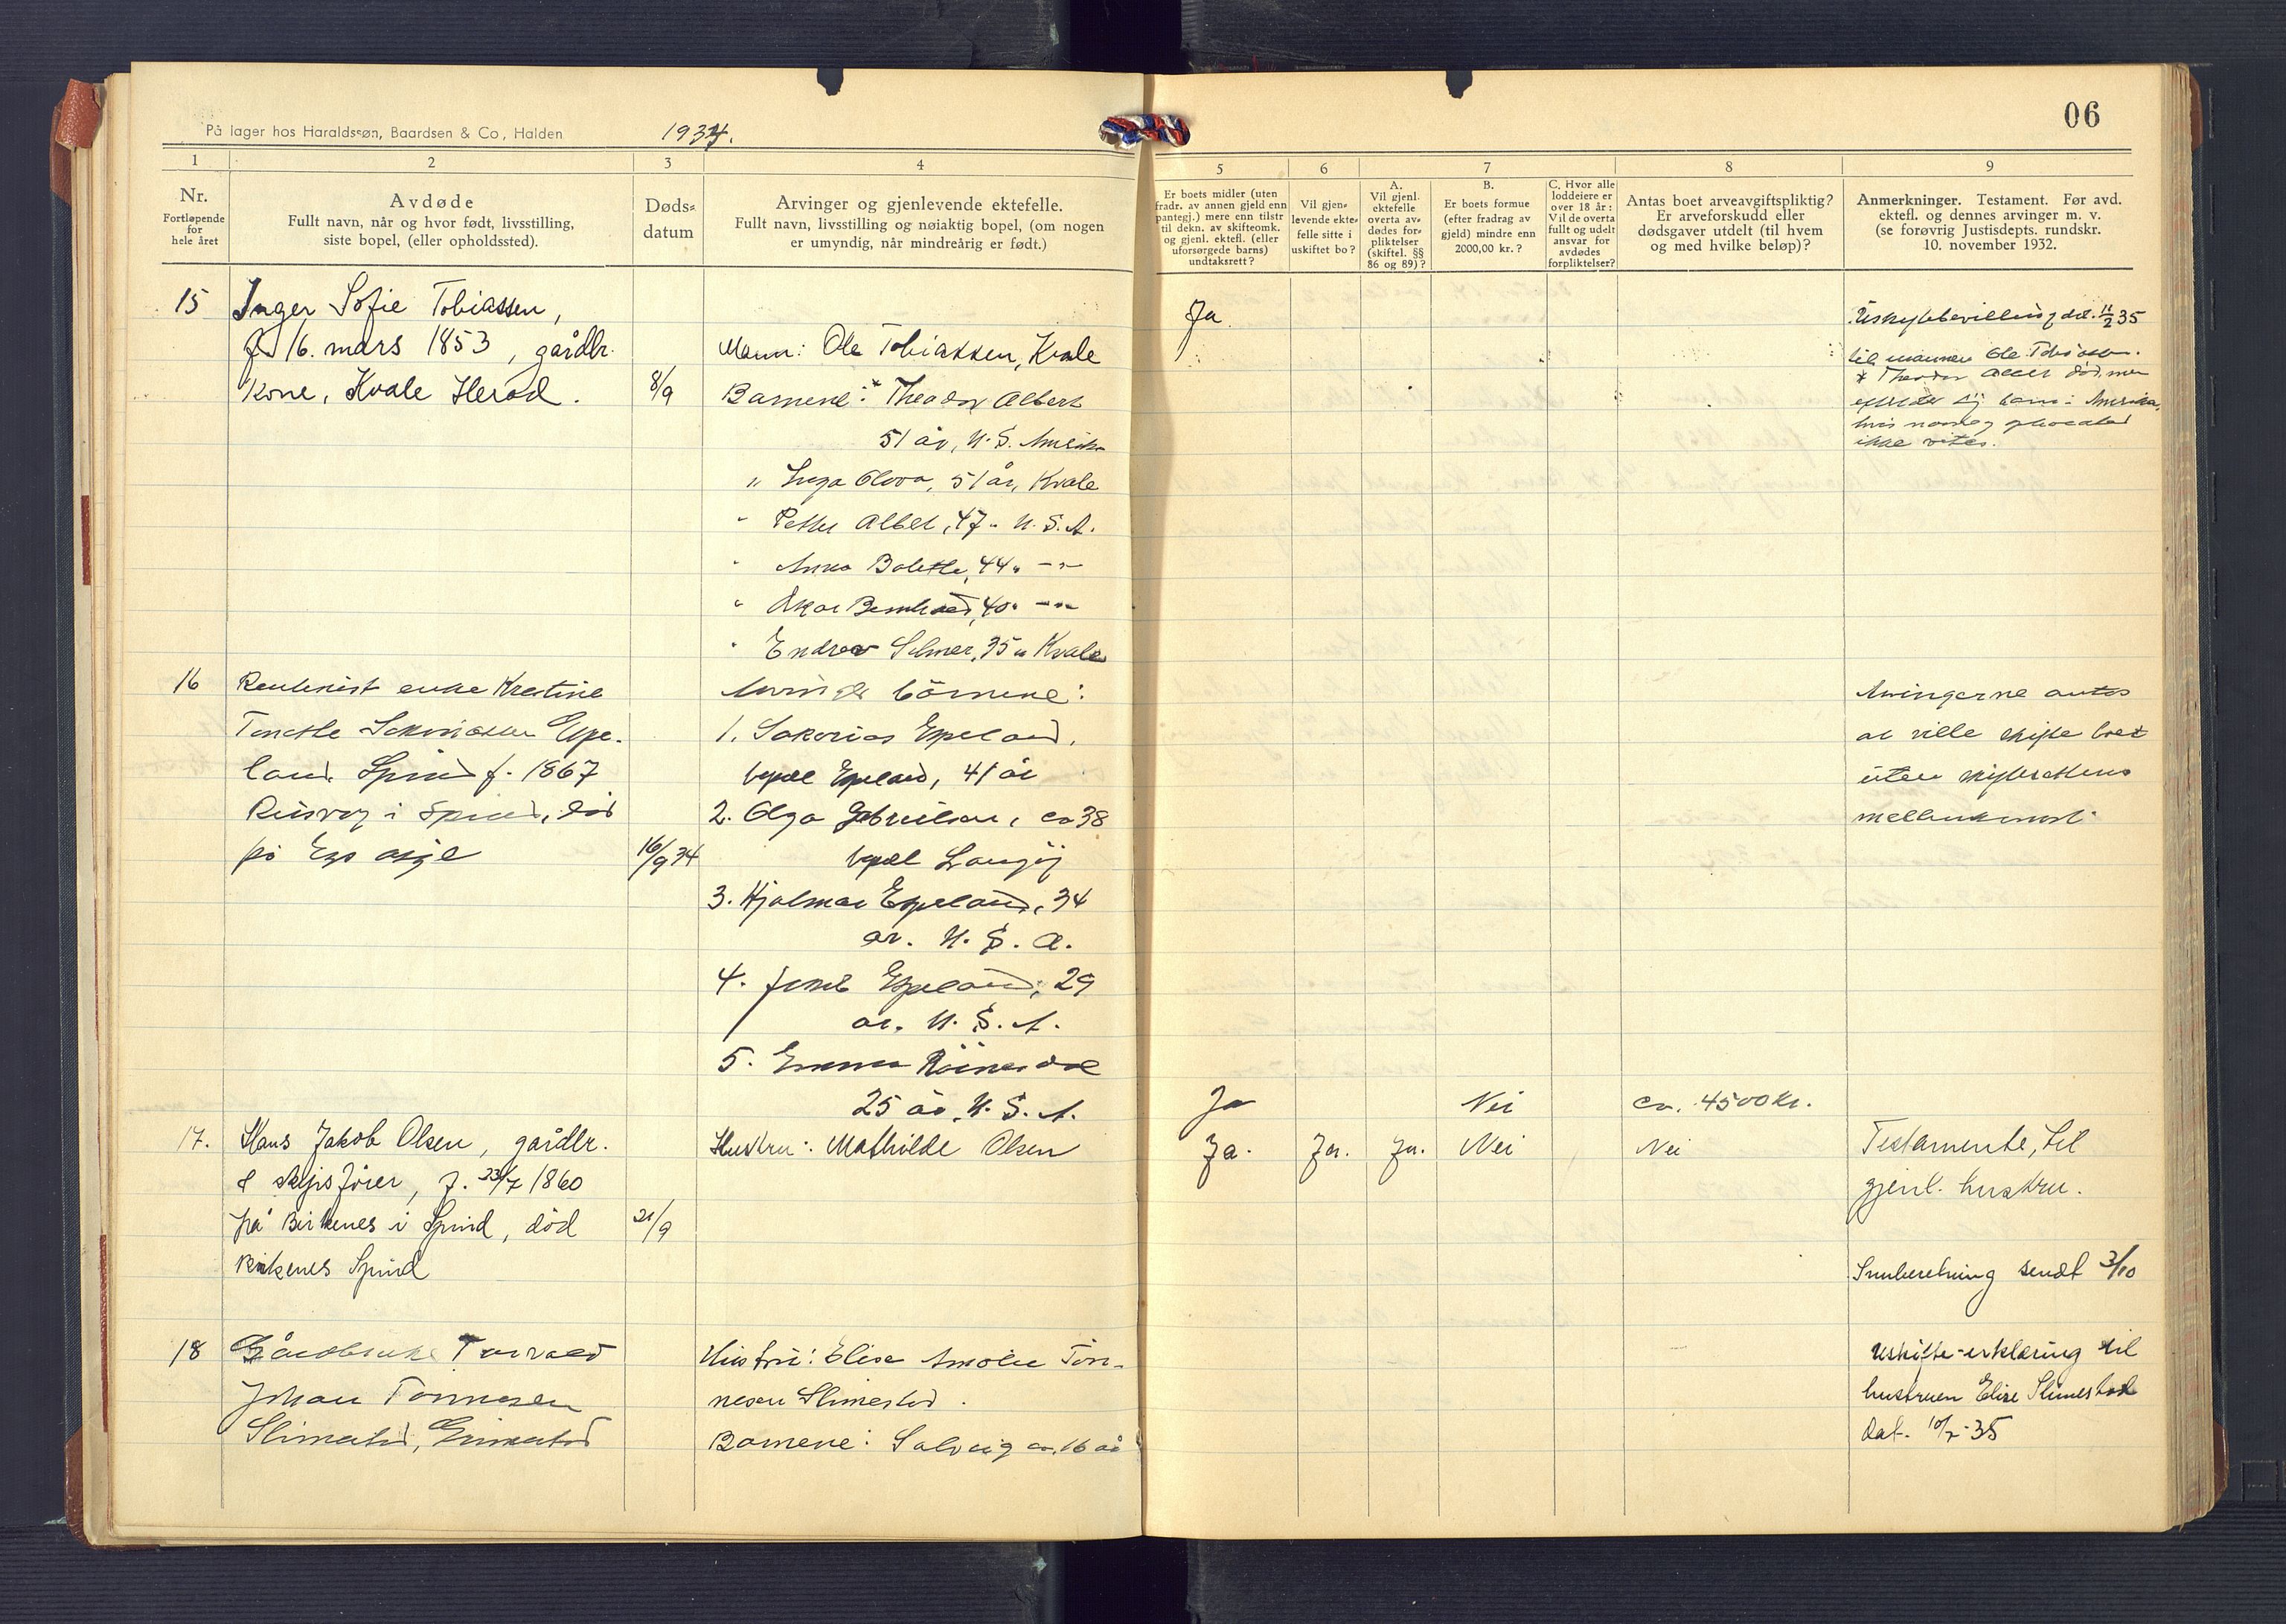 På lager hos Haraldssøn, Baardsen & Co, Halden
1934.
06
1 2 3 4 5 6 7 8 9
Nr.
Fortløpende
for
hele året
Avdøde
Fullt navn, når og hvor født, livsstilling,
siste bopel, (eller opholdssted).
Døds-
datum
Arvinger og gjenlevende ektefelle.
Fullt navn, livsstilling og nøiaktig bopel, (om nogen
er umyndig, når mindreårig er født.)
Er boets midler (uten
fradr. av annen gjeld enn
pantegj.) mere enn tilstr
til dekn. av skifteomk.
og gjenl. ektefl. (eller
uforsørgede barns)
undtaksrett?
Vil gjen-
levende ekte-
felle sitte i
uskiftet bo?
A.
Vil gjenl.
ektefelle
overta av-
dødes for-
pliktelser
(skiftel. §§
86 og 89)?
B.
Er boets formue
(efter fradrag av
gjeld) mindre enn
2000,00 kr.?
C. Hvor alle
loddeiere er
over 18 år:
Vil de overta
fullt og udelt
ansvar for
avdødes
forpliktelser?
Antas boet arveavgiftspliktig?
Er arveforskudd eller
dødsgaver utdelt (til hvem
og med hvilke beløp)?
Anmerkninger. Testament. Før avd.
ektefl. og dennes arvinger m. v.
(se forøvrig Justisdepts. rundskr.
10. november 1932.
15 Inger Sofie Tobiassen,
f. 16. mars 1853, gårdbr.
kone, Kvale Herad.
8/9
Mann: Ole Tobiassen, Kvale
Barnene: * Theodor Albert
51 år, U.S. Amerika
" Inga Olava, 51 år, Kvale
" Petter Albet, 47 " U.S.A.
" Anna Bolette, 44 " - " -
" Oskar Bernhard, 40 " - " -
" Endrew Selmer, 35 " Kvale
Ja
Uskiftebevilling dat. 11/2 35
til mannen Ole Tobiassen.
* Theodor Albert død, men
barn i Amerika,
hvis navn og
ikke vites.
16 enke Krestine
Tonette Sakariassen Espe-
land Spind f. 1867
i Spind, død
på
16/9 34
Arvinger børnene:
1. Sakarias Espeland,
bopel Espeland, 41 år
2. Olga Gabrielsen, ca 38
bopel
3. Hjalmar Espeland, 34
år. U.S.A.
4. Espeland, 29
år. U.S.A.
5. Emma
25 år, U.S.A.
Ja Nei ca. 4500 kr.
Arvingerne antas
at ville skifte boet
uten skifterettens
mellemkomst.
17. Hans Jakob Olsen, gårdbr.
& skipsfører, f. 23/7 1860
på Birkenes i Spind, død
Birkenes Spind
21/9
Hustru: Mathilde Olsen
Ja. Ja. Ja. Nei Nei
Testamente, til
gjenl. hustru.
Innberetning sendt 3/10
18 Gårdbruker Torvald
Johan Tønnesen
Slimestad,
Hustru: Elise Amalie Tøn-
nesen Slimestad.
Barnene: Solveig ca. 16 år
Uskifte-erklæring til
hustruen Elise Slimestad
dat. 10/2-35